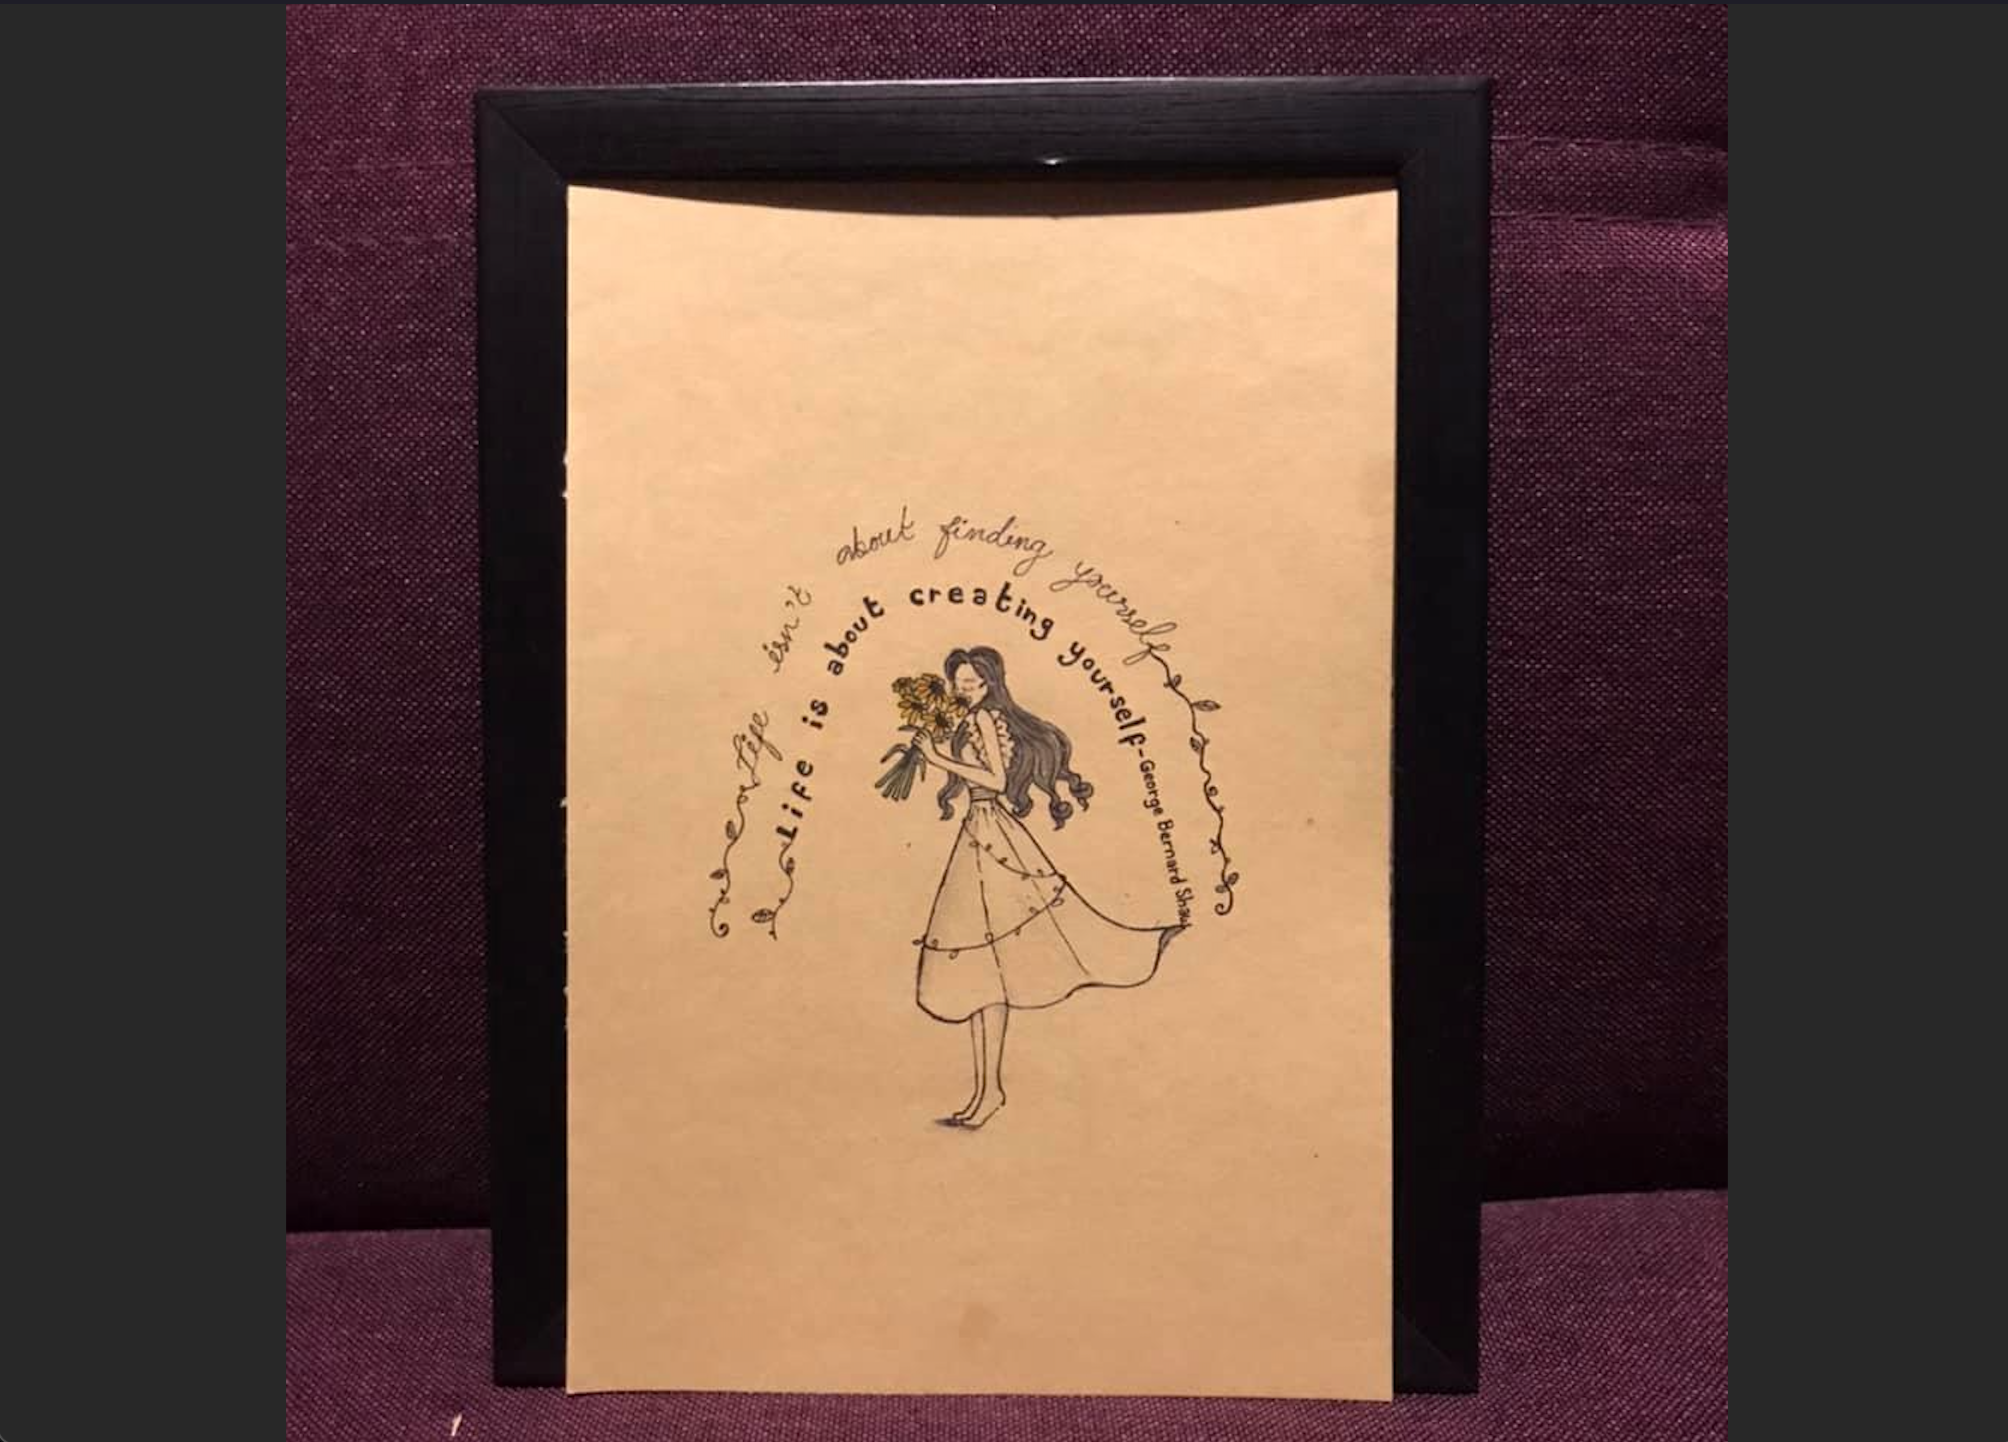 Life isn't about finding yourself
Life is about creating yourself-George Bernard Shaw